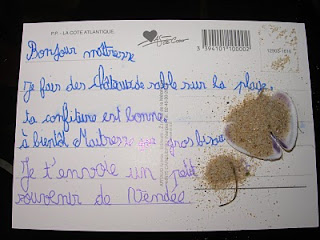 P.P. - LA COTE ATLANTIQUE
3 594101 100002
Bonjour maîtresse
Je fais des châteaux de sable sur la plage,
ta confiture est bonne
à bientôt Maitresse gros bisou
Je t'envoie un petit
souvenir de Vendée